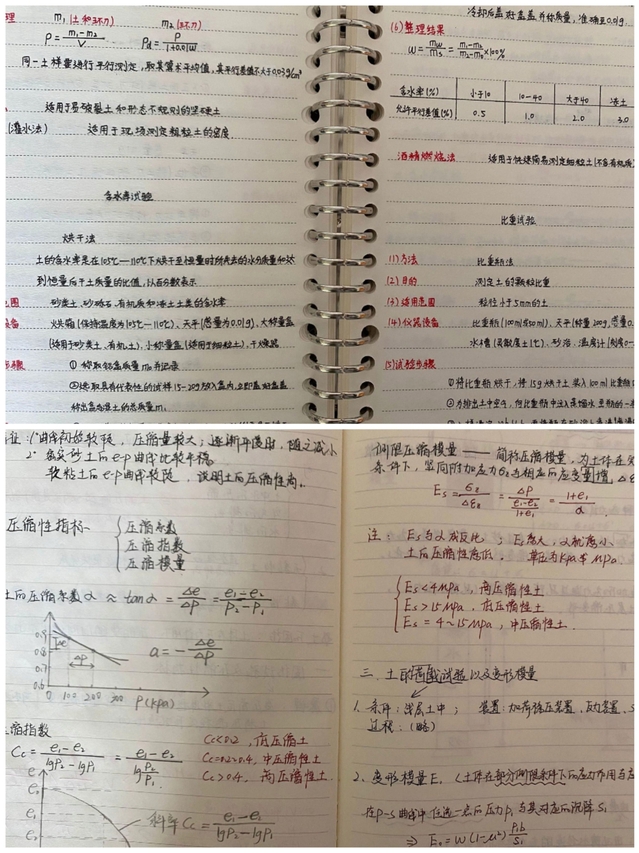 理 m₁(土和环刀) m₂(环刀)
ρ = (m₁-m₂)/V ρd = ρ/(1+0.01W)
同一土样重进行平行测定，取其算术平均值，其平行差值不大于0.03g/cm³
适用于易破裂土和形态不规则的坚硬土
(灌水法) 适用于现场测定粗粒土的密度
含水率试验
烘干法
土的含水率是在105℃—110℃下烘干至恒量时所失去的水分质量和达
到恒量后干土质量的比值，以百分数表示
围 砂类土、砂砾石、有机质和冻土土类的含水率
设备 烘箱(保持温度为105℃—110℃)、天平(感量为0.01g)、大称量盒
(适用于砂类土、有机土)，小称量盒(适用于细粒土)，干燥器
步骤 ①称取铝盒质量m₀并记录
②选取具有代表性的试样15-20g放入盒内，立即盖好盒盖
称出盒与湿土的总质量m₁
冷却后盖好盒盖并称质量，准确至0.01g.
(6)整理结果
W = mw/ms = (m₁-m₂)/(m₂-m₀)×100%
含水率(%) 小于10 10-40 大于40 冻土
允许平行差值(%) 0.5 1.0 2.0 3.0
酒精燃烧法 适用于快速简易测定细粒土(不含有机质)
比重试验
(1)方法 比重瓶法
(2)目的 测定土的颗粒比重
(3)适用范围 粒径小于5mm的土
(4)仪器设备 比重瓶(100ml或50ml)，天平(称量200g，感量0.
水槽(灵敏度±1℃)、砂浴、温度计(刻度0-
(5)试验步骤
①将比重瓶烘干，将15g烘干土装入100ml比重瓶
②为排出土中空气，向比重瓶中注入蒸馏水至瓶的一半
注 1°曲线初始较陡，压缩量较大；逐渐平缓时，随之减小
2°密实砂土的e-p曲线比较平缓
软粘土的e-p曲线较陡，说明土的压缩性高.
压缩性指标
压缩系数
压缩指数
压缩模量
土的压缩系数α ≈ tanα = Δe/Δp = (e₁-e₂)/(P₂-P₁)
0.9
0.8
0.7
0.6
Δe
Δp
a = -Δe/Δp
0 100 200 300 P(kpa)
缩指数
Cc = (e₁-e₂)/(lgP₂-lgP₁) = (e₁-e₂)/(lg P₂/P₁)
Cc<0.2，低压缩土
Cc=0.2~0.4，中压缩性土
Cc>0.4，高压缩性土
e
e₀
e₁
e₂
斜率Cc = (e₁-e₂)/(lgP₂-lgP₁)
侧限压缩模量——简称压缩模量，为土体在
条件下，竖向附加应力σz与相应的应变增
Es = σz/Δεz = Δp/((e₁-e₂)/(1+e₁)) = (1+e₁)/α
注： Es与α成反比；Es愈大，α就愈小
土的压缩性愈低. 单位为Kpa或Mpa
Es<4Mpa，高压缩性土
Es>15Mpa，低压缩性土
Es = 4~15Mpa，中压缩性土.
三、土的荷载试验以及变形模量
1. 条件：浅层土中； 装置：加荷稳压装置，反力装置，
过程：(略)
2、变形模量E。(土体在部分侧限条件下的应力作用与应
在P-s曲线中任选一点的压力P₁与其对应的沉降S₁
⇒ E₀ = W(1-μ²) P₁b/S₁